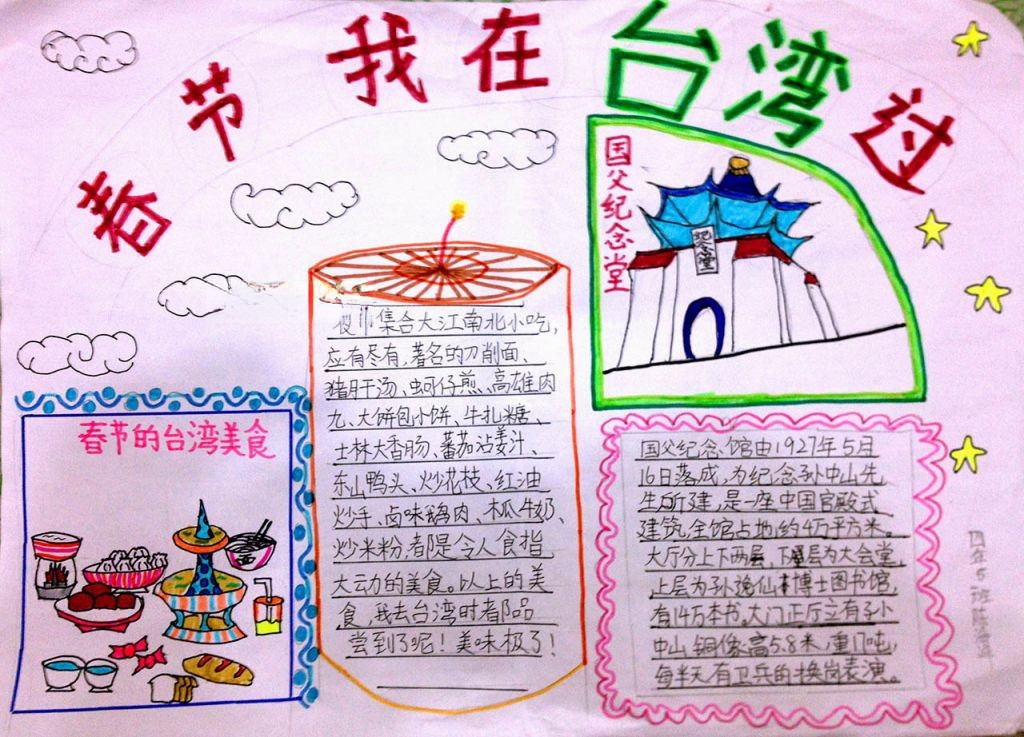 春节我在台湾过
国父纪念堂
纪念堂
夜市集合大江南北小吃,
应有尽有,著名的刀削面、
猪肝汤、蚵仔煎、高雄肉
九、大饼包小饼、牛扎糖、
士林大香肠、蕃茄沾姜汁、
东山鸭头、炒花枝、红油
炒手、卤味鹅肉、木瓜牛奶、
炒米粉,都是令人食指
大动的美食。以上的美
食,我去台湾时都品
尝到了呢!美味极了!
春节的台湾美食
国父纪念馆由1927年5月
16日落成,为纪念孙中山先
生所建,是一座中国宫殿式
建筑,全馆占地约4万平方米。
大厅分上下两层,下层为大会堂,
上层为孙逸仙博士图书馆,
有14万本书。大门正厅立有孙
中山铜像高5.8米,重17吨,
每半天有卫兵的换岗表演。
四年5班陈